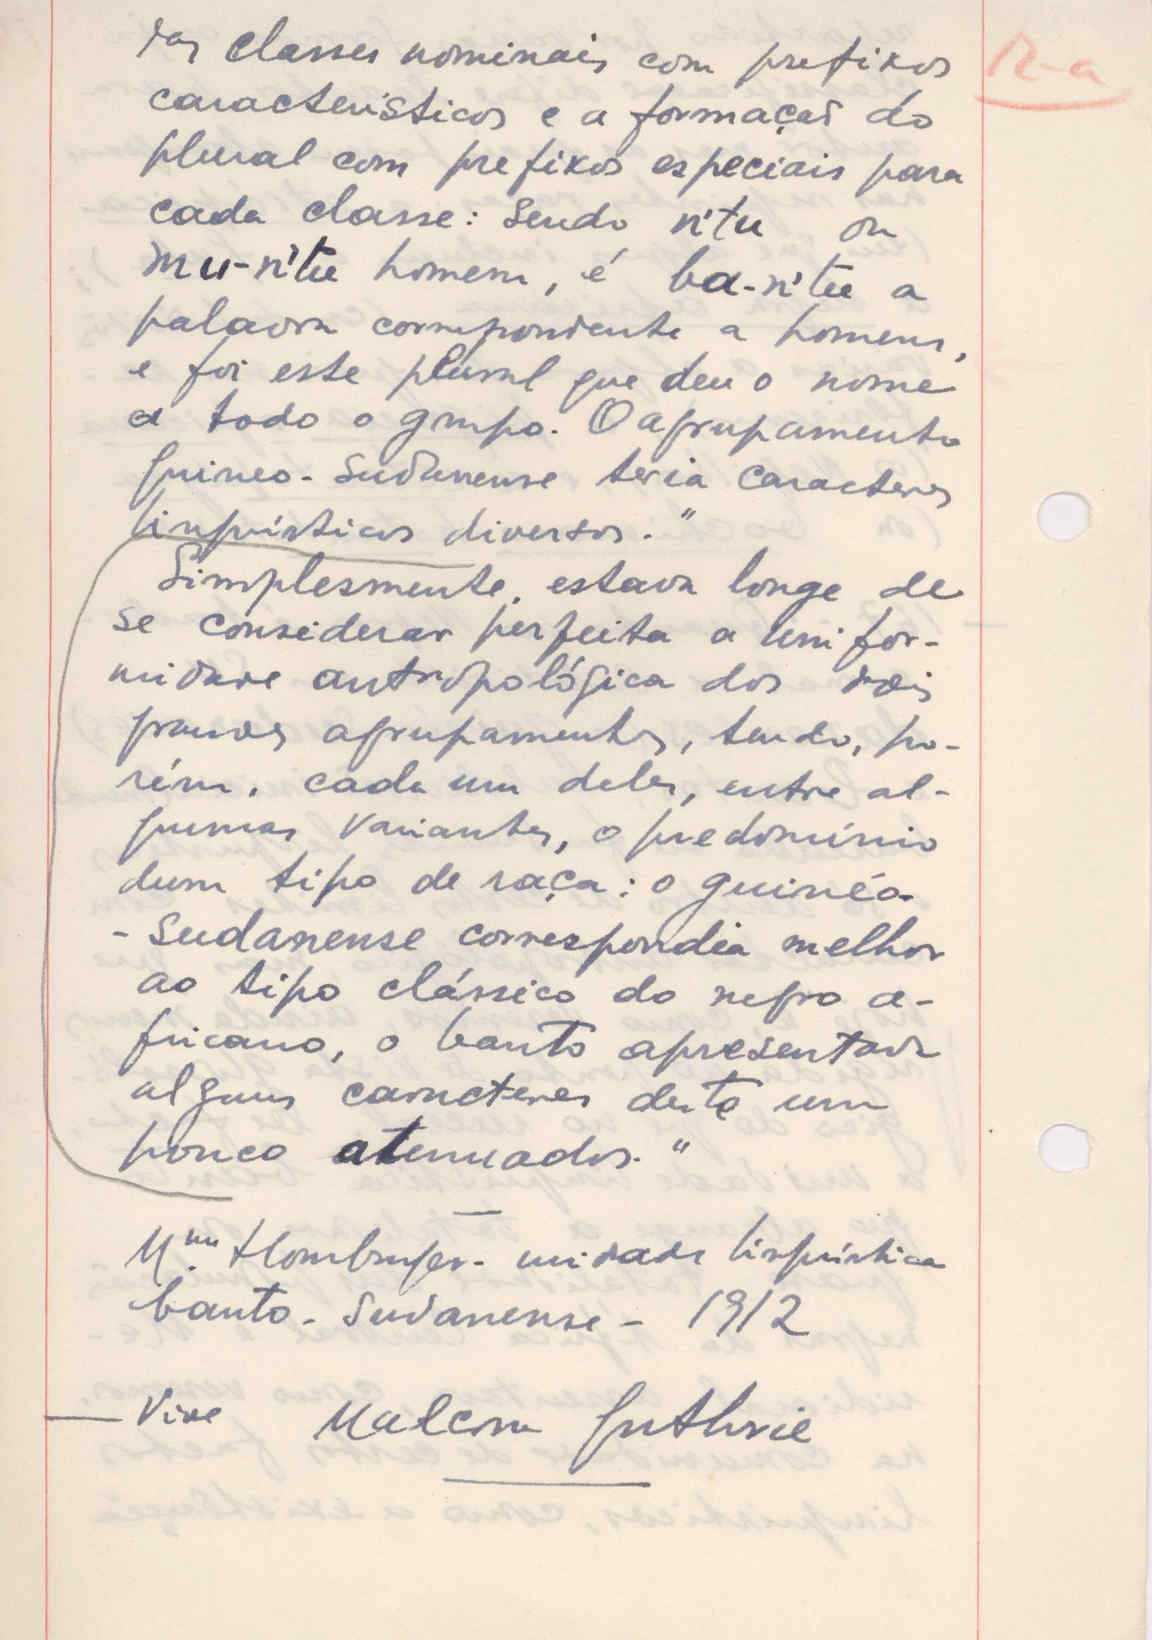 das classes nominais com prefixos
12-a
característicos e a formação do
plural com prefixos especiais para
cada classe: Sendo n'tu ou
mu-n'tu homem, é ba-n'tu a
palavra correspondente a homens,
e foi este plural que deu o nome
a todo o grupo. O agrupamento
guineo-sudanense teria caracteres
linguísticos diversos."
Simplesmente, estava longe de
se considerar perfeita a unifor-
midade antropológica dos dois
grandes agrupamentos, tendo, po-
rém, cada um deles, entre al-
gumas variantes, o predomínio
dum tipo de raça: o guinéo-
-Sudanense correspondia melhor
ao tipo clássico do negro a-
fricano, o banto apresentava
alguns caracteres deste um
pouco atenuados."
Mme. Homburger - unidade linguística
banto-Sudanense - 1912
— Vide Malcom Guthrie